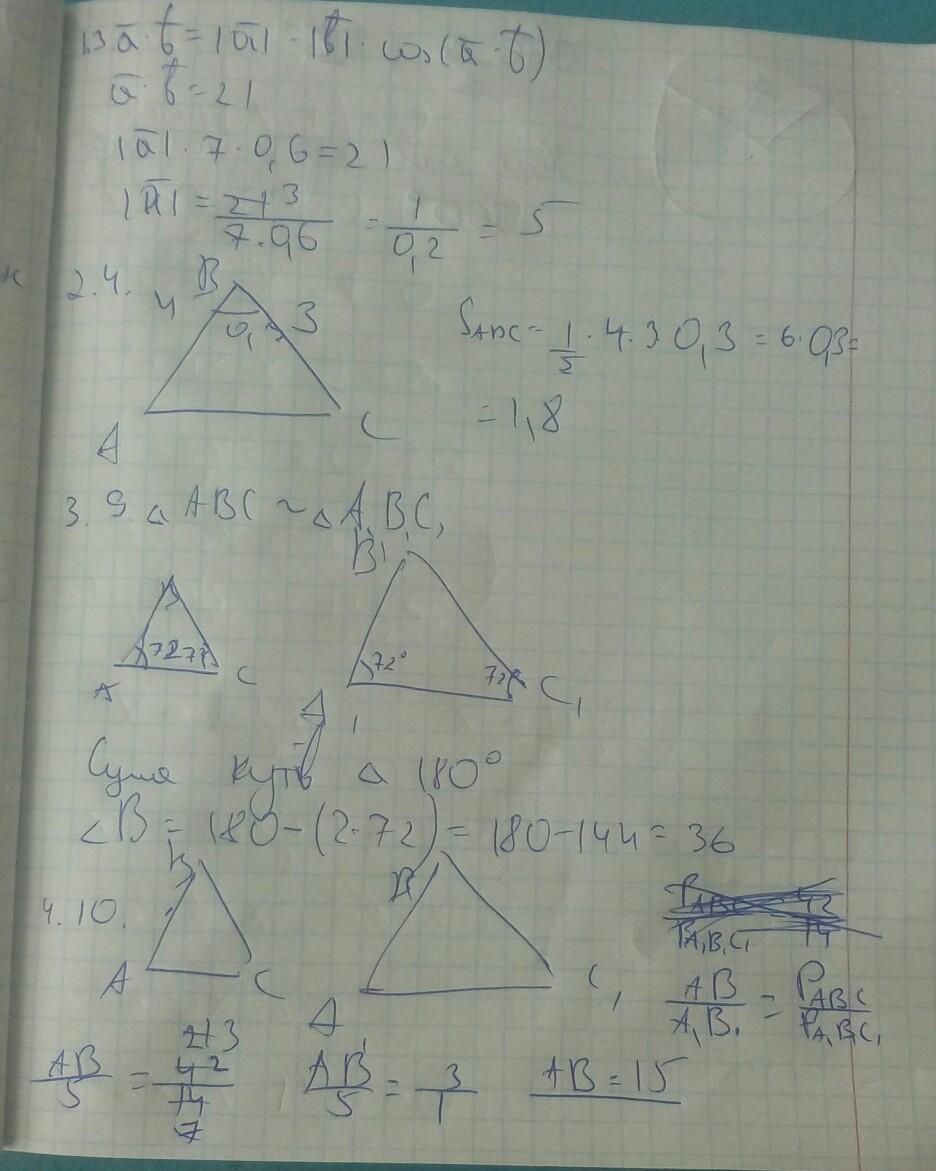 1.3 a̅ · b̅ = |a̅| · |b̅| · cos(a̅ · b̅)
a̅ · b̅ = 21
|a̅| · 7 · 0,6 = 21
|a̅| = 21 3 / 7 · 0,6 = 1 / 0,2 = 5
2.4. B
4 0,3 3
A C
S ABC = 1/2 · 4 · 3 0,3 = 6 · 0,3 =
= 1,8
3. 9. △ ABC ~ △ A₁B₁C₁
B B₁
72 72 72° 72°
A C A₁ C₁
Сума кутів △ 180°
∠B = 180 - (2·72) = 180 - 144 = 36
4.10. B B
A C A₁ C₁
P ABC / P A₁B₁C₁ 42 / 14
AB / A₁B₁ = P ABC / P A₁B₁C₁
AB / 5 = 21 3 42 / 14 7
AB / 5 = 3 / 1
AB = 15